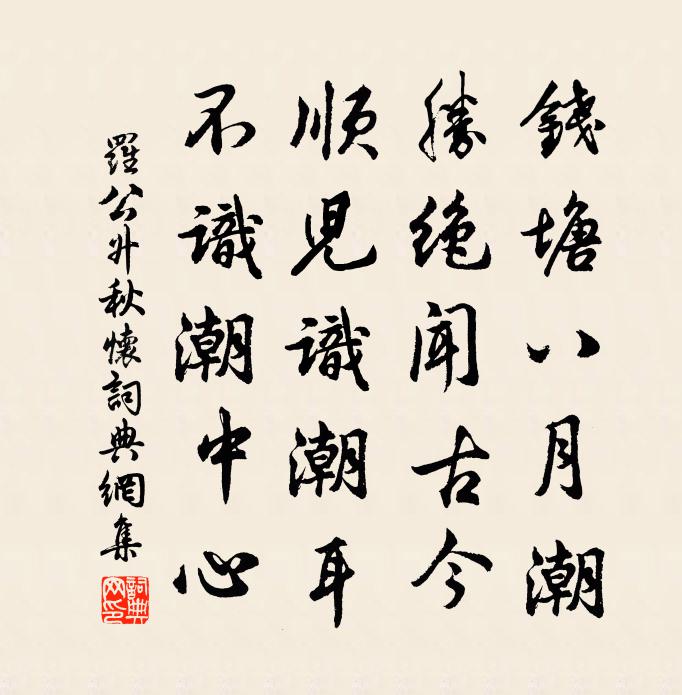 錢塘八月潮
勝絶聞古今
順兒識潮耳
不識潮中心
羅公升秋懷詞典網集
詞典網印